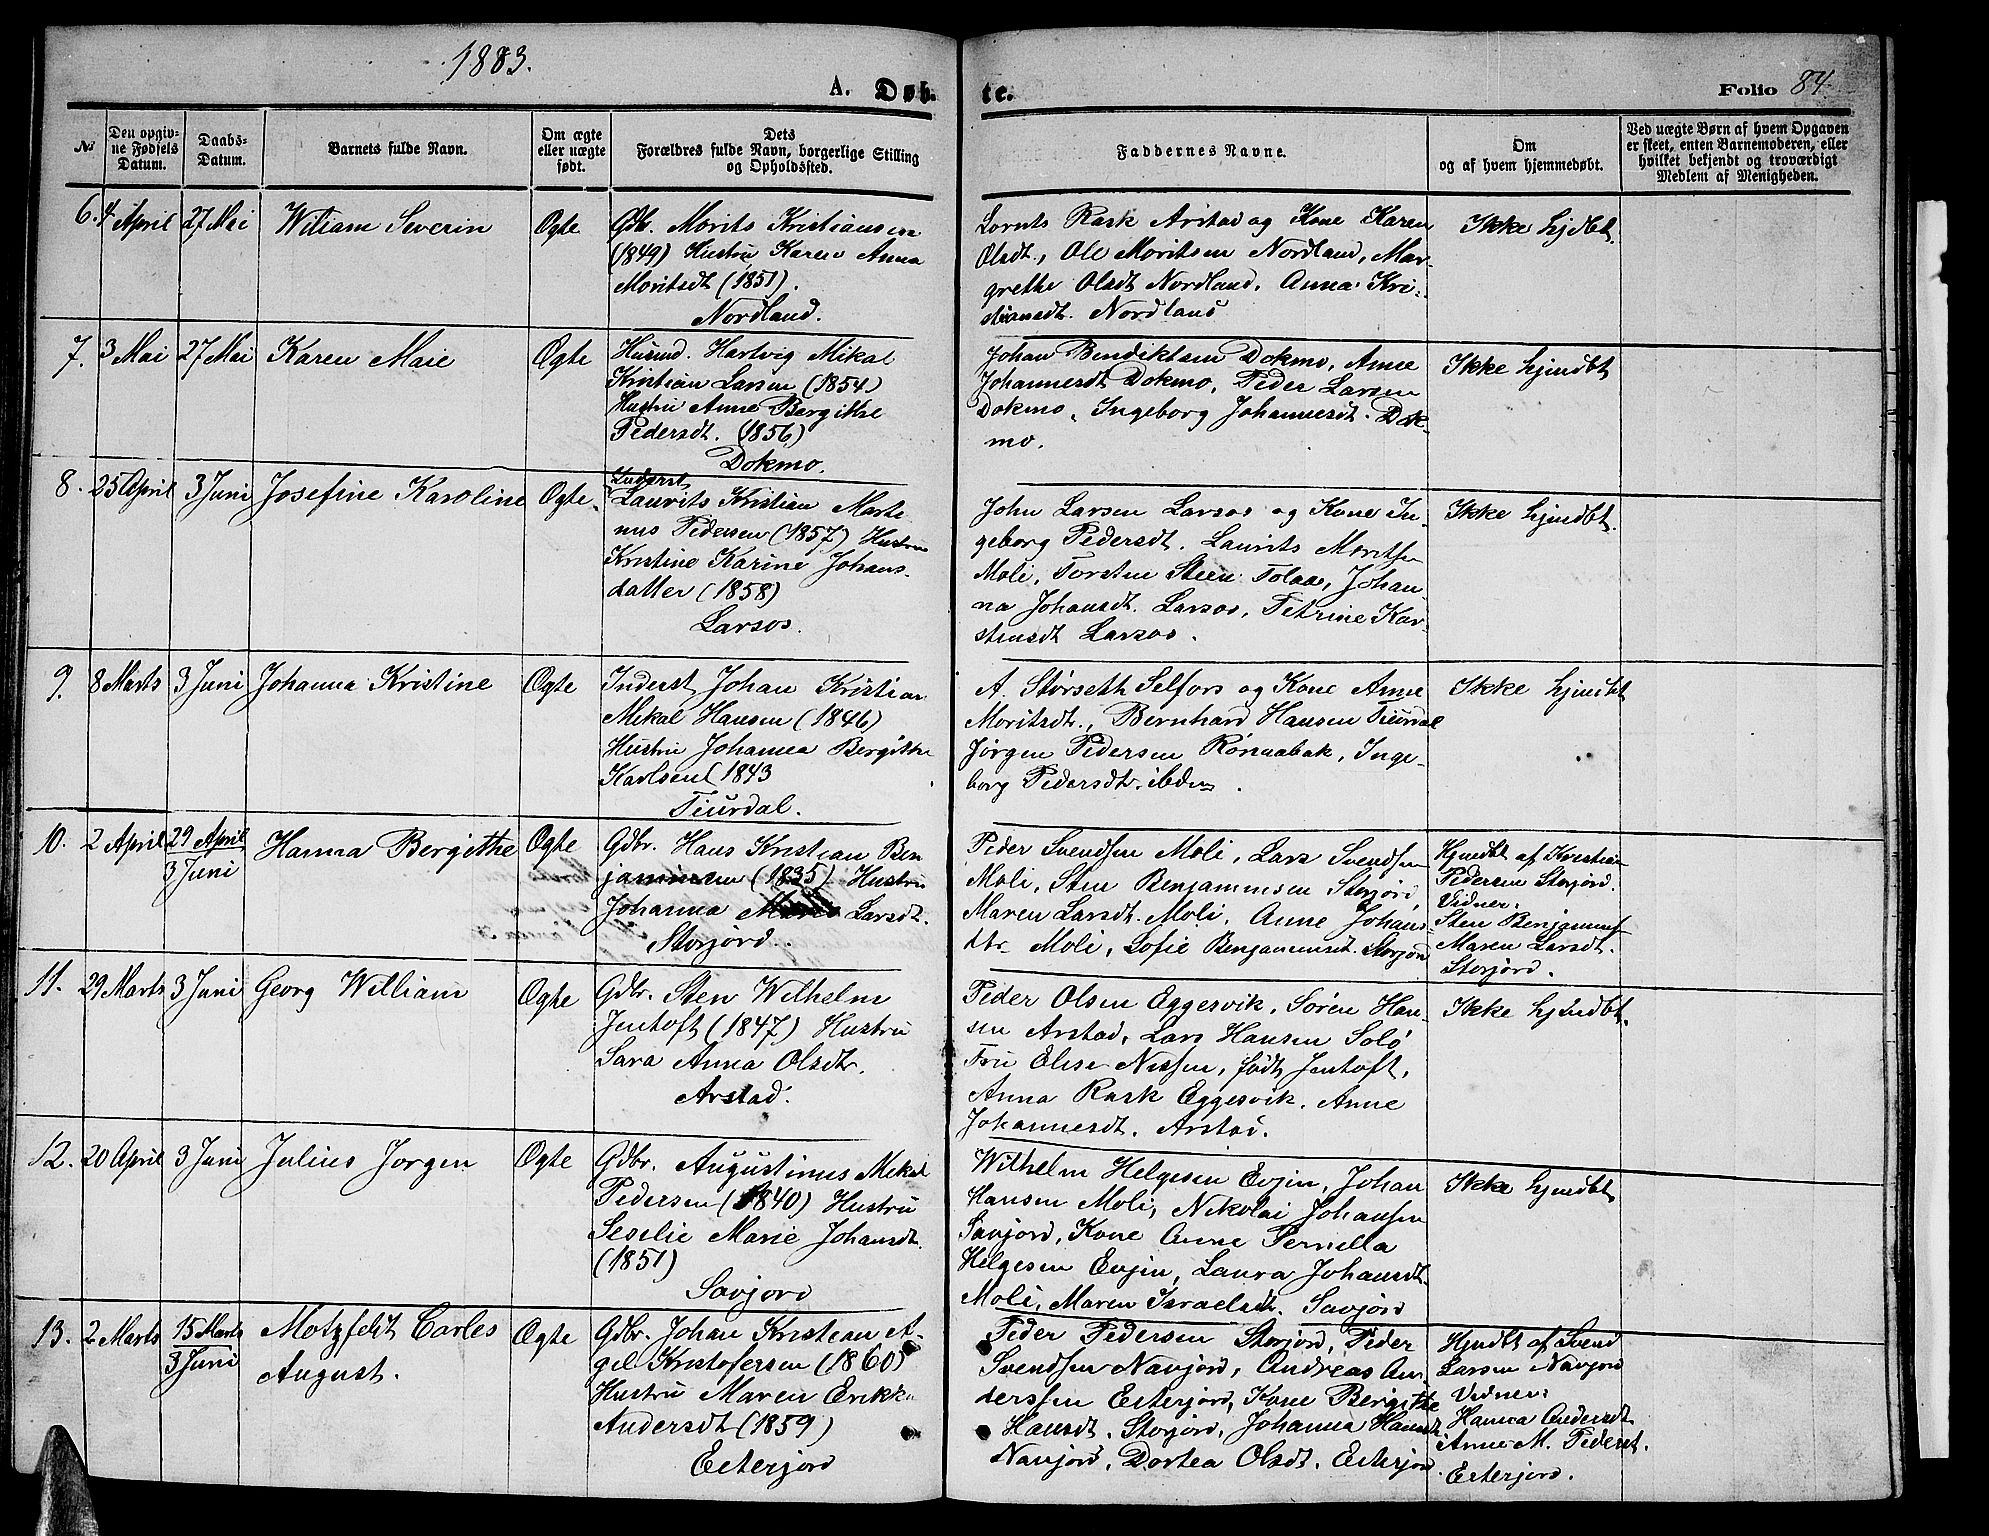 1883.
A. Døb-
te.
Folio 84.
No
Den opgiv-
ne Fødsels
Datum.
Daabs-
Datum.
Barnets fulde Navn.
Om ægte
eller uægte
født.
Dets
Forældres fulde Navn, borgerlige Stilling
og Opholdssted.
Faddernes Navne.
Om
og af hvem hjemmedøbt.
Ved uægte Børn af hvem Opgaven
er skeet, enten Barnemoderen, eller
hvilket bekjendt og troværdigt
Medlem af Menigheden.
6. 4 April 27 Mai Wiliam Severin Ægte
Gdb. Morits Kristiansen
(1849) Hustru Karen Anna
Moritsdt (1851).
Nordland.
Lornts Rask Arstad og Kone Karen
Olsdt., Ole Moritsen Nordland, Mar-
grethe Olsdt Nordland, Anna Kri-
stiansdt. Nordland
Ikke hjdbt.
7. 3 Mai 27 Mai Karen Maie Ægte
Husmd. Hartvig Mikal
Kristian Larsen (1854)
Hustru Anne Bergithe
Pedersdt. (1856)
Dokmo.
Johan Bendiktsen Dokmo, Anne
Johannesdt Dokmo, Peder Larsen
Dokmo, Ingeborg Johannesdt. Dok-
mo.
Ikke hjmdbt
8. 25 April 3 Juni Josefine Karoline Ægte.
Inderst
Laurits Kristian Marte
nus Pedersen (1857) Hustru
Kristine Karine Johans-
datter (1858)
Larsos.
John Larsen Larsos og Kone In-
geborg Pedersdt. Laurits Moritsen
Moli, Torsten Steen Tolaa, Johan-
na Johansdt. Larsos, Petrine Kar-
stensdt Larsos.
Ikke hjmdbt.
9. 8 Marts 3 Juni Johanna Kristine Ægte
Inderst Johan Kristian
Mikal Hansen (1846)
Hustru Johanna Bergitte
Karlsen (1843
Tiurdal.
A. Størseth Selfors og Kone Anne
Moritsdt., Bernhard Hansen Tiurdal
Jørgen Pedersen Rønaabak, Inge-
borg Pedersdt. ibdm.
Ikke hjmdbt
10. 2 April 29 April
3 Juni
Hanna Bergithe Ægte
Gdbr. Hans Kristian Ben
jaminsen (1835) Hustru
Johanna Larsdt.
Storjord.
Peder Svendsen Moli, Lars Svendsen
Moli, Sten Benjaminsen Storjord,
Maren Larsdt. Moli, Anne Johans-
dtr Moli, Sofie Benjaminsdt. Storjord
Hjmdbt af Kristian
Pedersen Storjord.
Vidner:
Sten Benjamins
Maren Larsdt.
Storjord.
11. 29 Marts 3 Juni Georg William Ægte
Gdbr. Sten Wilhelm
Jentoft (1847) Hustru
Sara Anna Olsdtr.
Arstad.
Peder Olsen Eggesvik, Sören Han-
sen Arstad, Lars Hansen Solö
Fru Elise Nissen, født Jentoft,
Anna Rask Eggesvik, Anne
Johannesdt. Arstad.
Ikke hjmdbt.
12. 20 April 3 Juni Julius Jorgen Ægte
Gdbr. Augustinus Mikal
Pedersen (1840) Hustru
Sesilie Marie Johansdt.
(1851)
Savjord
Wilhelm Helgesen Evjen, Johan
Hansen Moli, Nikolai Johansen
Savjord, Kone Anne Pernella
Helgesen Evjen, Laura Johansdt.
Moli, Maren Israelsdt. Savjord
Ikke hjmdbt
13. 2 Marts 15 Marts
3 Juni
Motzfeldt Carles
August.
Ægte
Gdbr. Johan Kristian A-
gel Kristofersen (1860)
Hustru Maren Erikka
Andersdt (1859)
Esterjord
Peder Pedersen Storjord, Peder
Svendsen Navjord, Andreas An-
derssen Esterjord, Kone Bergithe
Hansdt. Storjord, Johanna Hansdt
Navjord, Dortea Olsdt. Esterjord.
Hjmdbt af Svend
Larsen Navjord
Vidner:
Hanna Andersdt
Anne M. Pedersdt.
Esterjord.